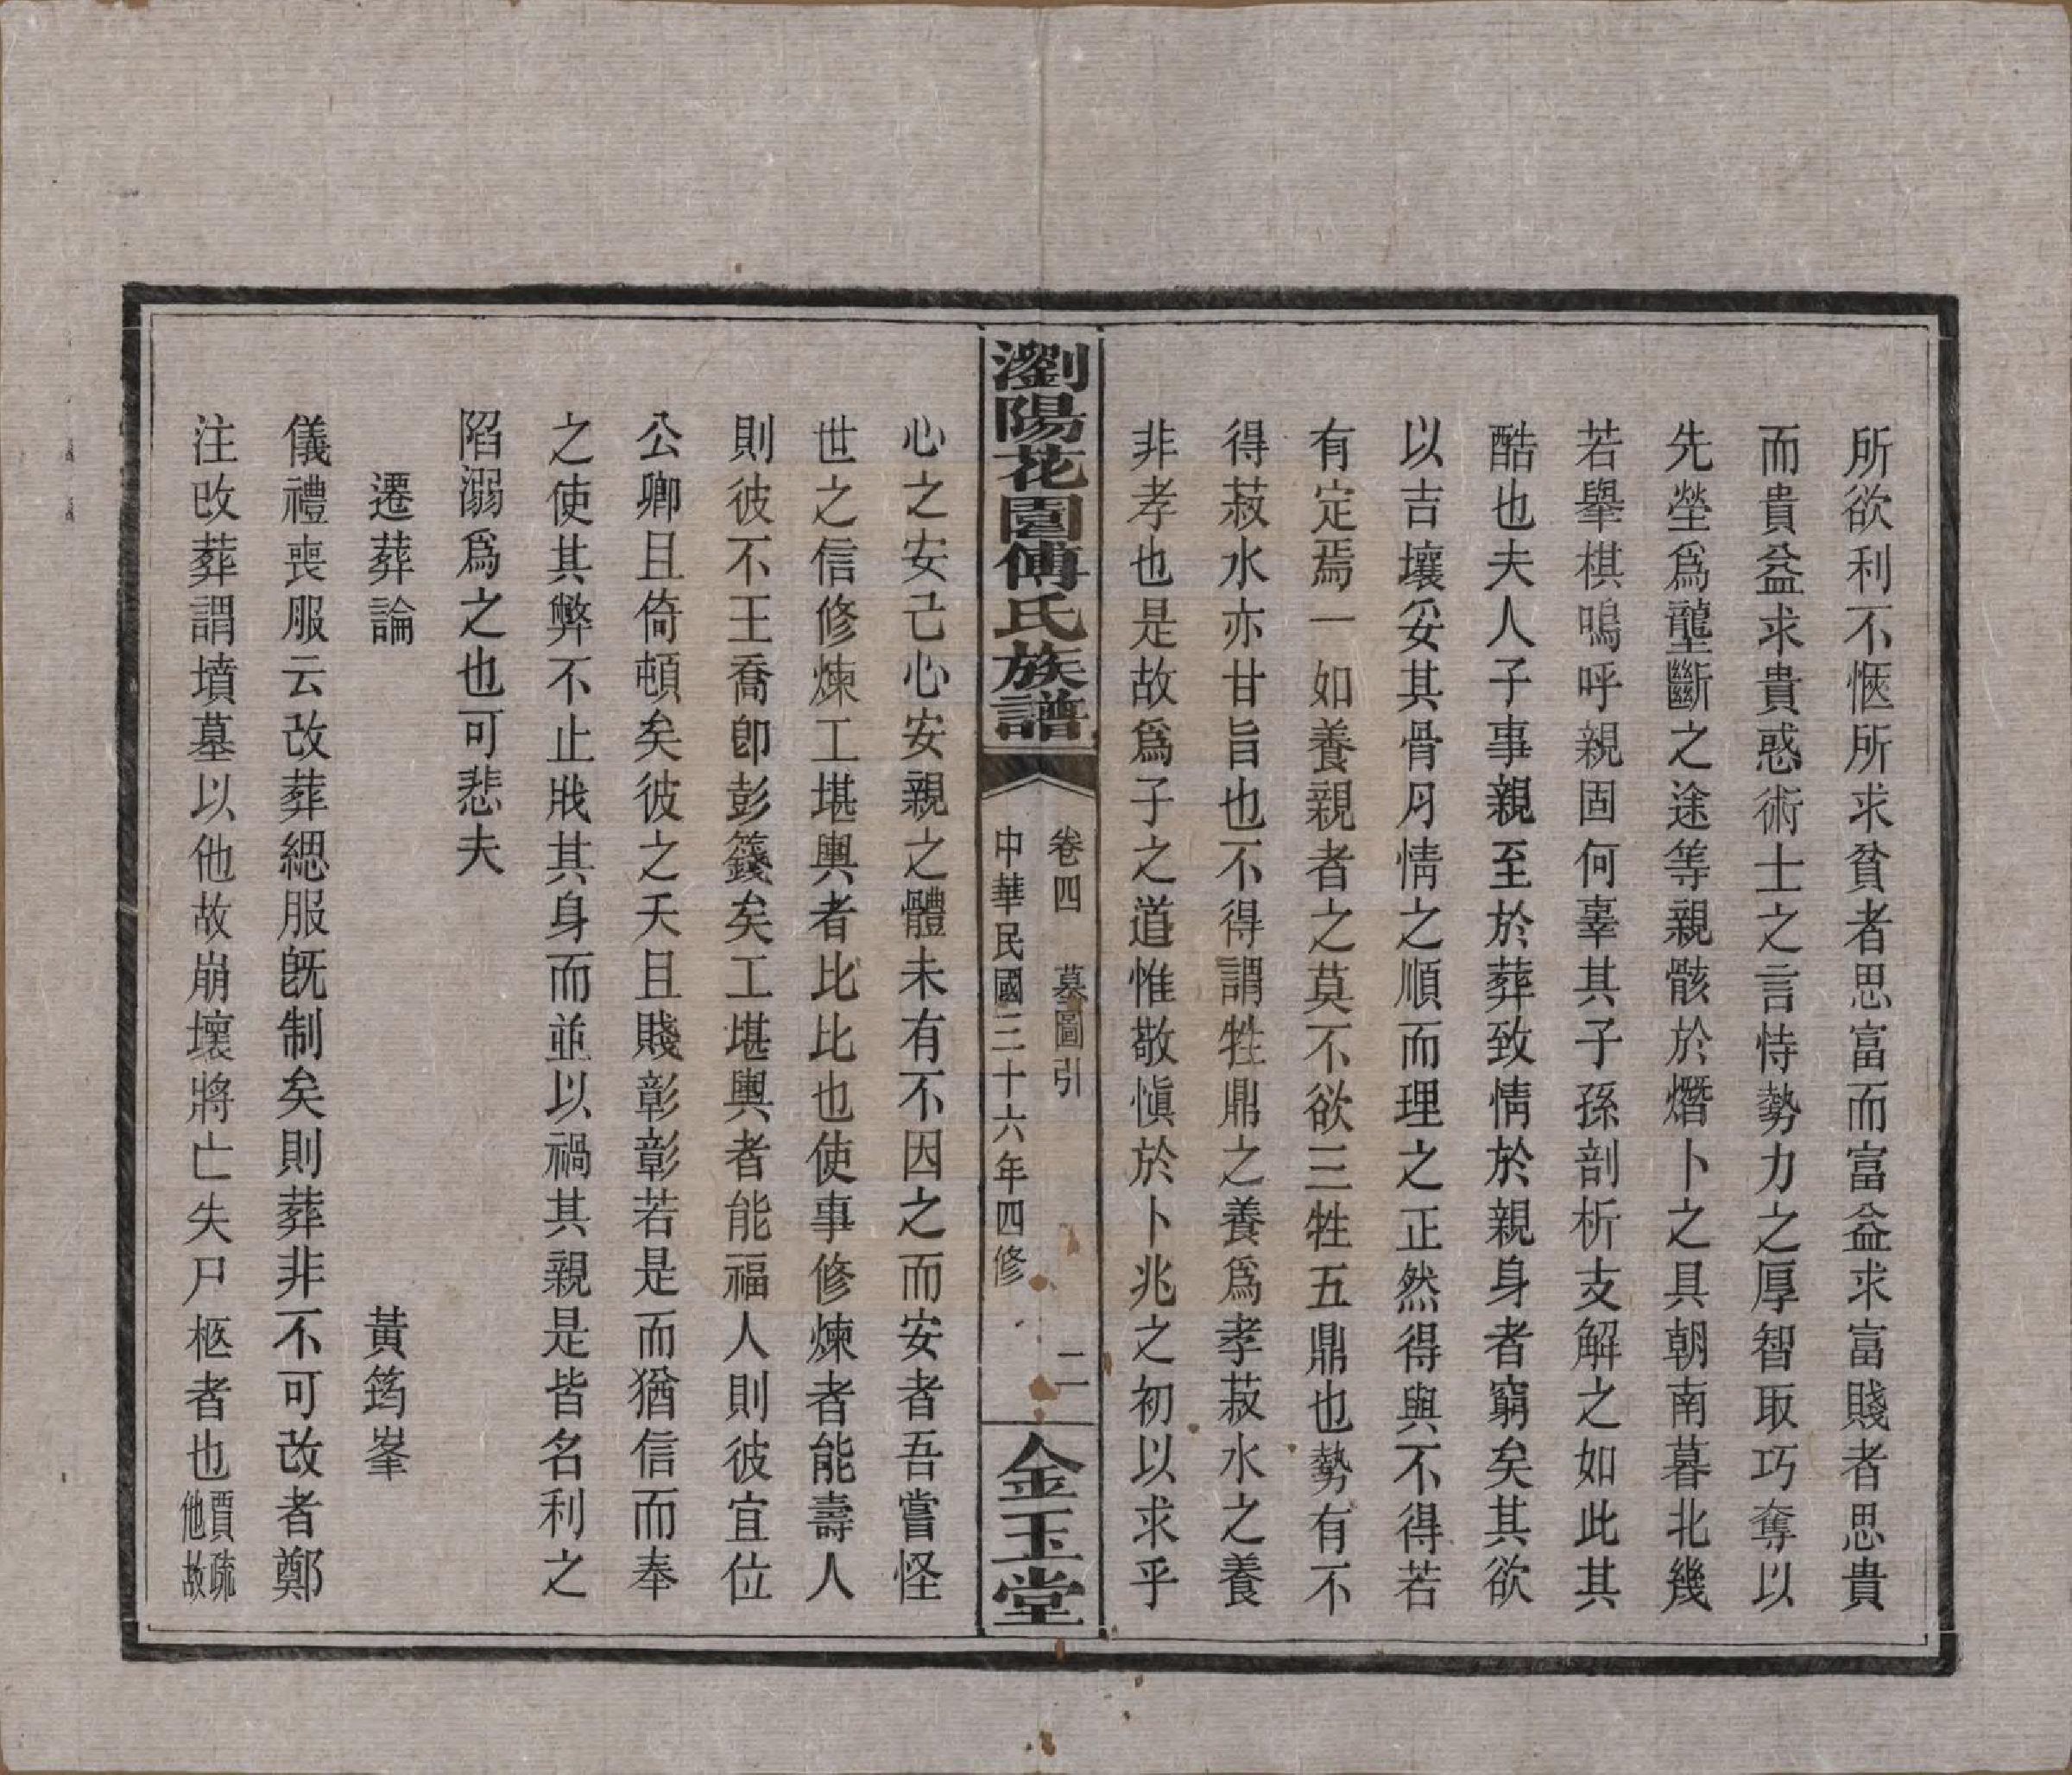 所欲利不愜所求貧者思富而富益求富賤者思貴
而貴益求貴惑術士之言恃勢力之厚智取巧奪以
先塋爲壟斷之途等親骸於熸卜之具朝南暮北幾
若舉棋嗚呼親固何辜其子孫剖析支解之如此其
酷也夫人子事親至於葬致情於親身者窮矣其欲
以吉壤妥其骨月情之順而理之正然得與不得若
有定焉一如養親者之莫不欲三牲五鼎也勢有不
得菽水亦甘旨也不得謂牲鼎之養爲孝菽水之養
非孝也是故爲子之道惟敬慎於卜兆之初以求乎
瀏陽花園傅氏族譜
卷四 墓圖引 二
中華民國三十六年四修
金玉堂
心之安己心安親之體未有不因之而安者吾嘗怪
世之信修煉工堪輿者比比也使事修煉者能壽人
則彼不王喬卽彭籛矣工堪輿者能福人則彼宜位
公卿且倚頓矣彼之夭且賤彰彰若是而猶信而奉
之使其弊不止戕其身而並以禍其親是皆名利之
陷溺爲之也可悲夫
遷葬論 黃筠峯
儀禮喪服云改葬緦服旣制矣則葬非不可改者鄭
注改葬謂墳墓以他故崩壞將亡失尸柩者也賈疏他故